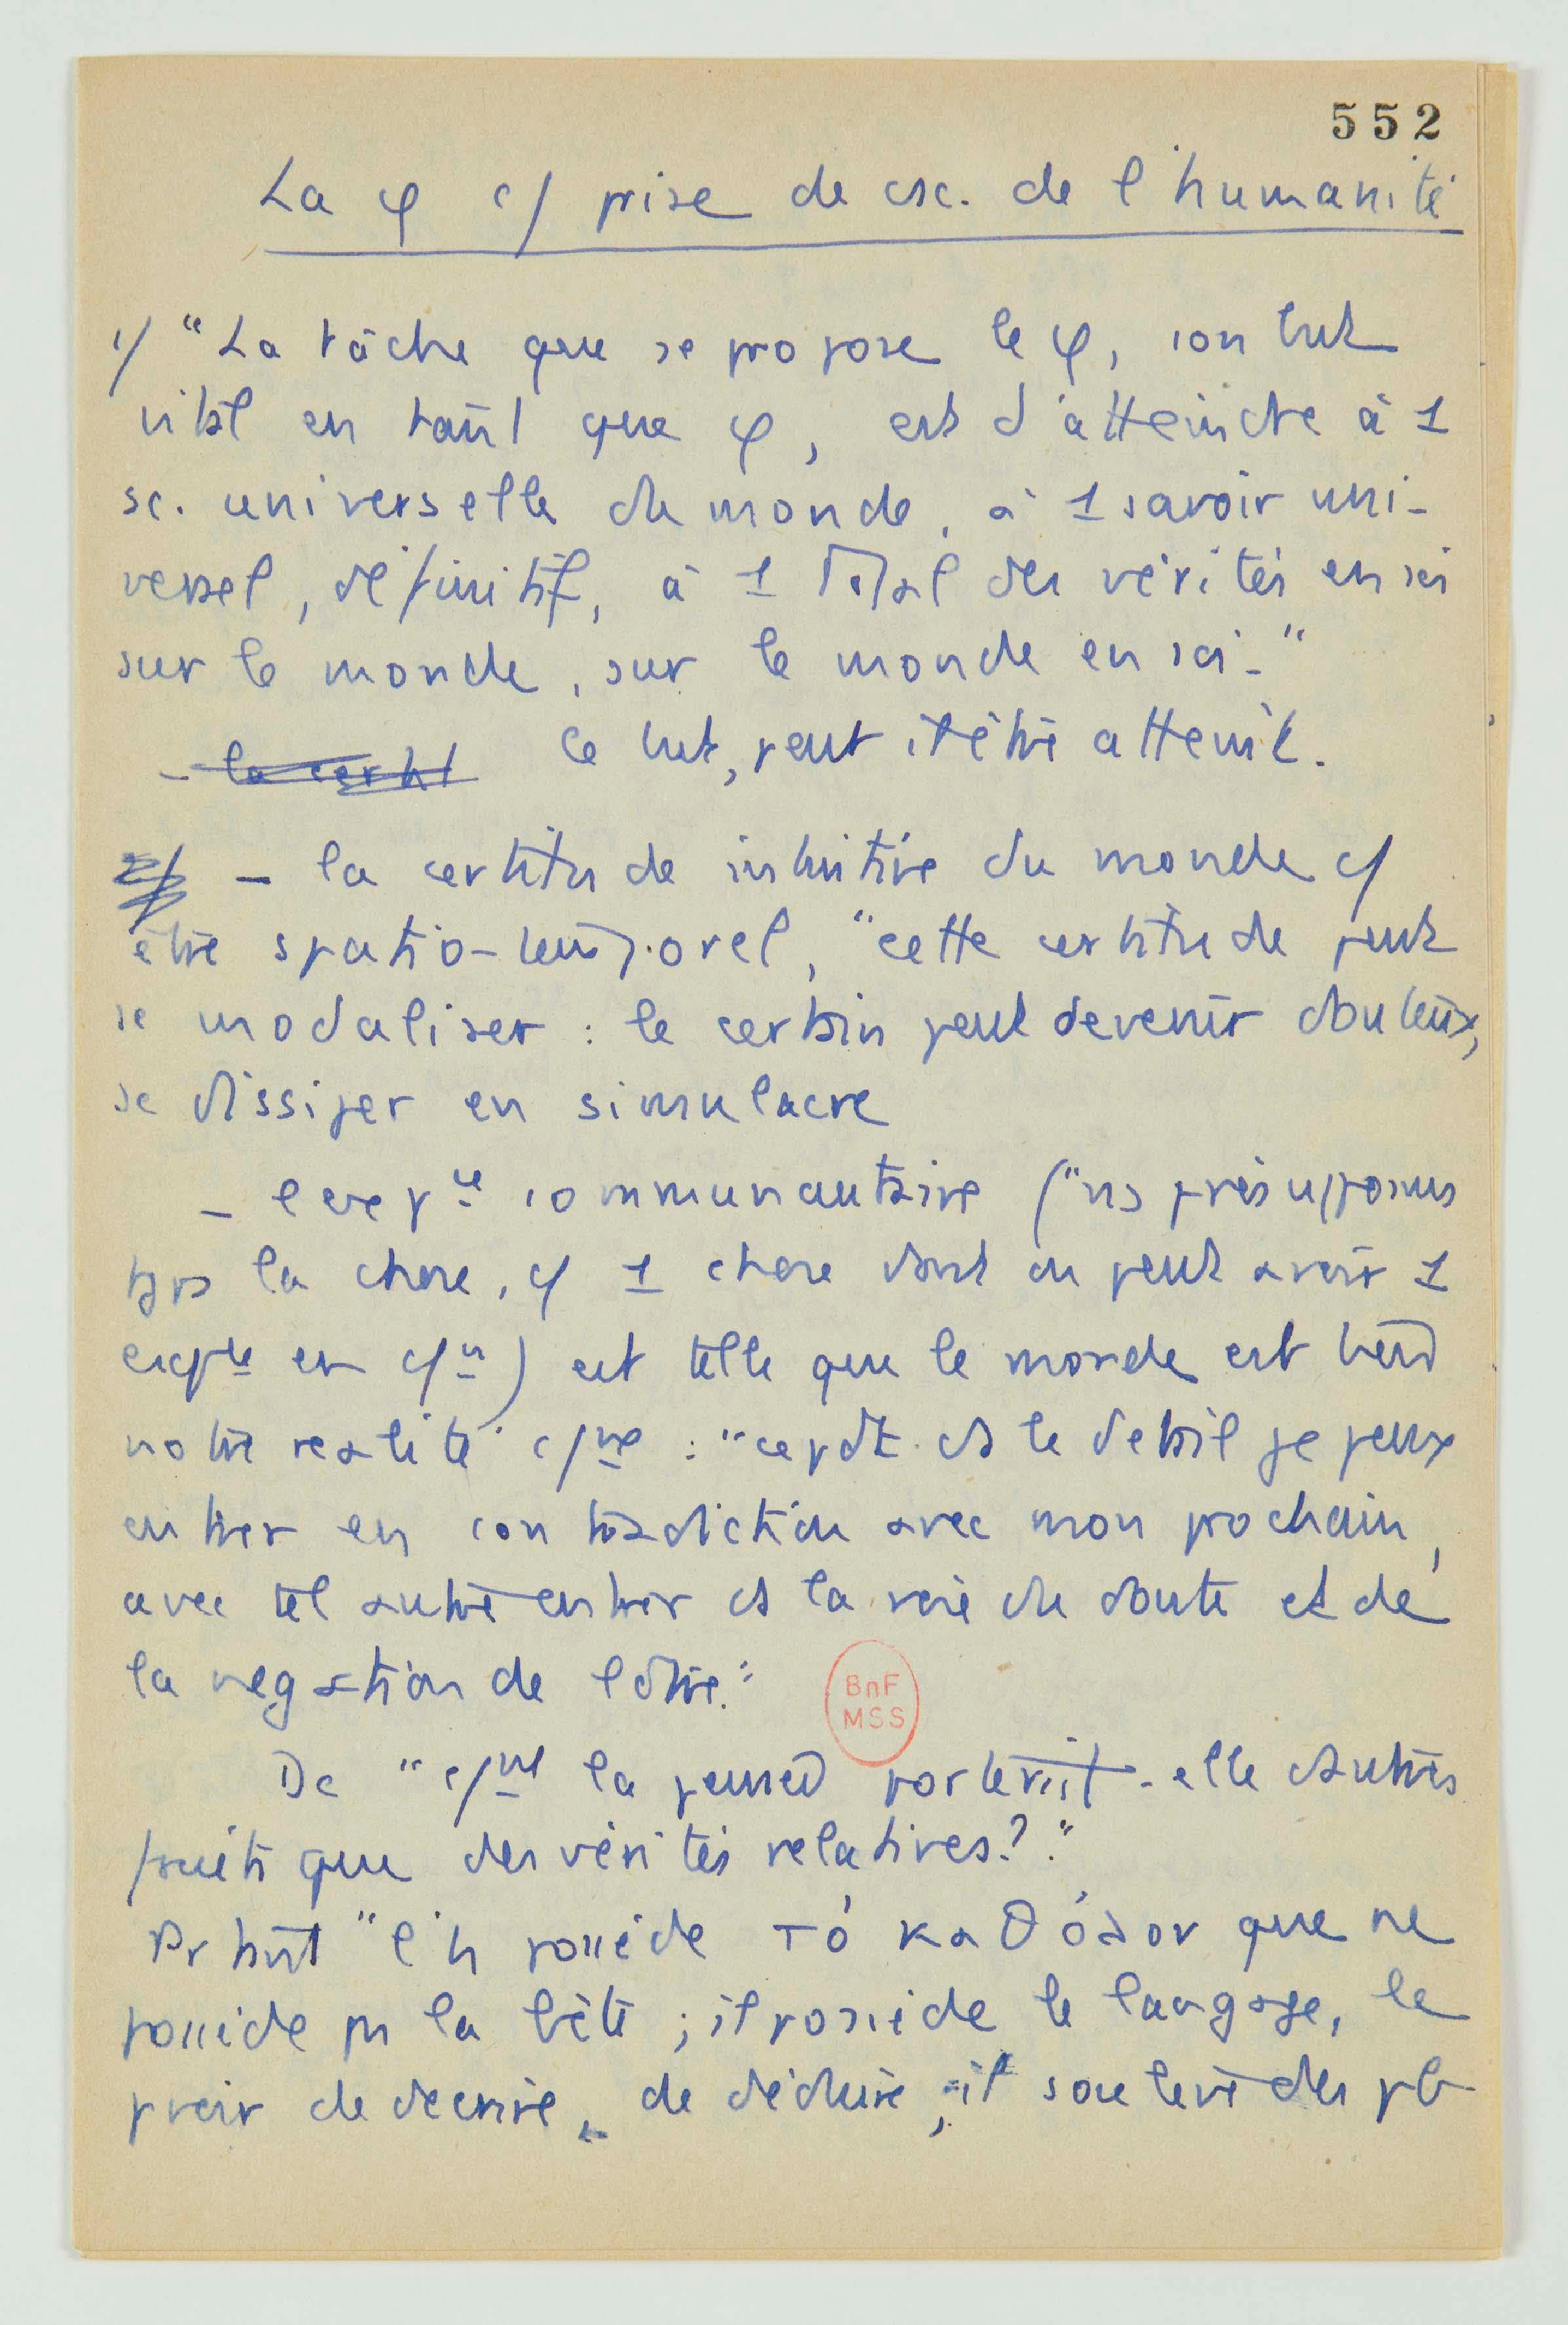 552
La φ c/ prise de csc. de l'humanité
1/ "La tâche que se propose le φ, son but
vital en tant que φ, est d'atteindre à 1
sc. universelle du monde, à 1 savoir uni-
versel, définitif, à 1 total des vérités en soi
sur le monde, sur le monde en soi."
- la certit Ce but, peut il être atteint.
2/ - la certitude intuitive du monde c/
être spatio-temporel, "cette certitude peut
se modaliser : le certain peut devenir douteux,
se dissiper en simulacre
- l'expce communautaire ("ns présupposons
tjrs la chose, c/ 1 chose dont on peut avoir 1
expce en c/un) est telle que le monde est
notre réalité c/ne : "cepdt ds le détail je peux
entrer en contradiction avec mon prochain,
avec tel autre entrer ds la voie du doute et de
la négation de l'être."
BnF
MSS
Dc "c/nt la pensée porterait-elle d'autres
fruits que des vérités relatives?"
Pr tant "l'h possède τό καθόλον que ne
possède pas la bête ; il possède le langage, le
pvoir de décrire, de déduire, il soulève des pb